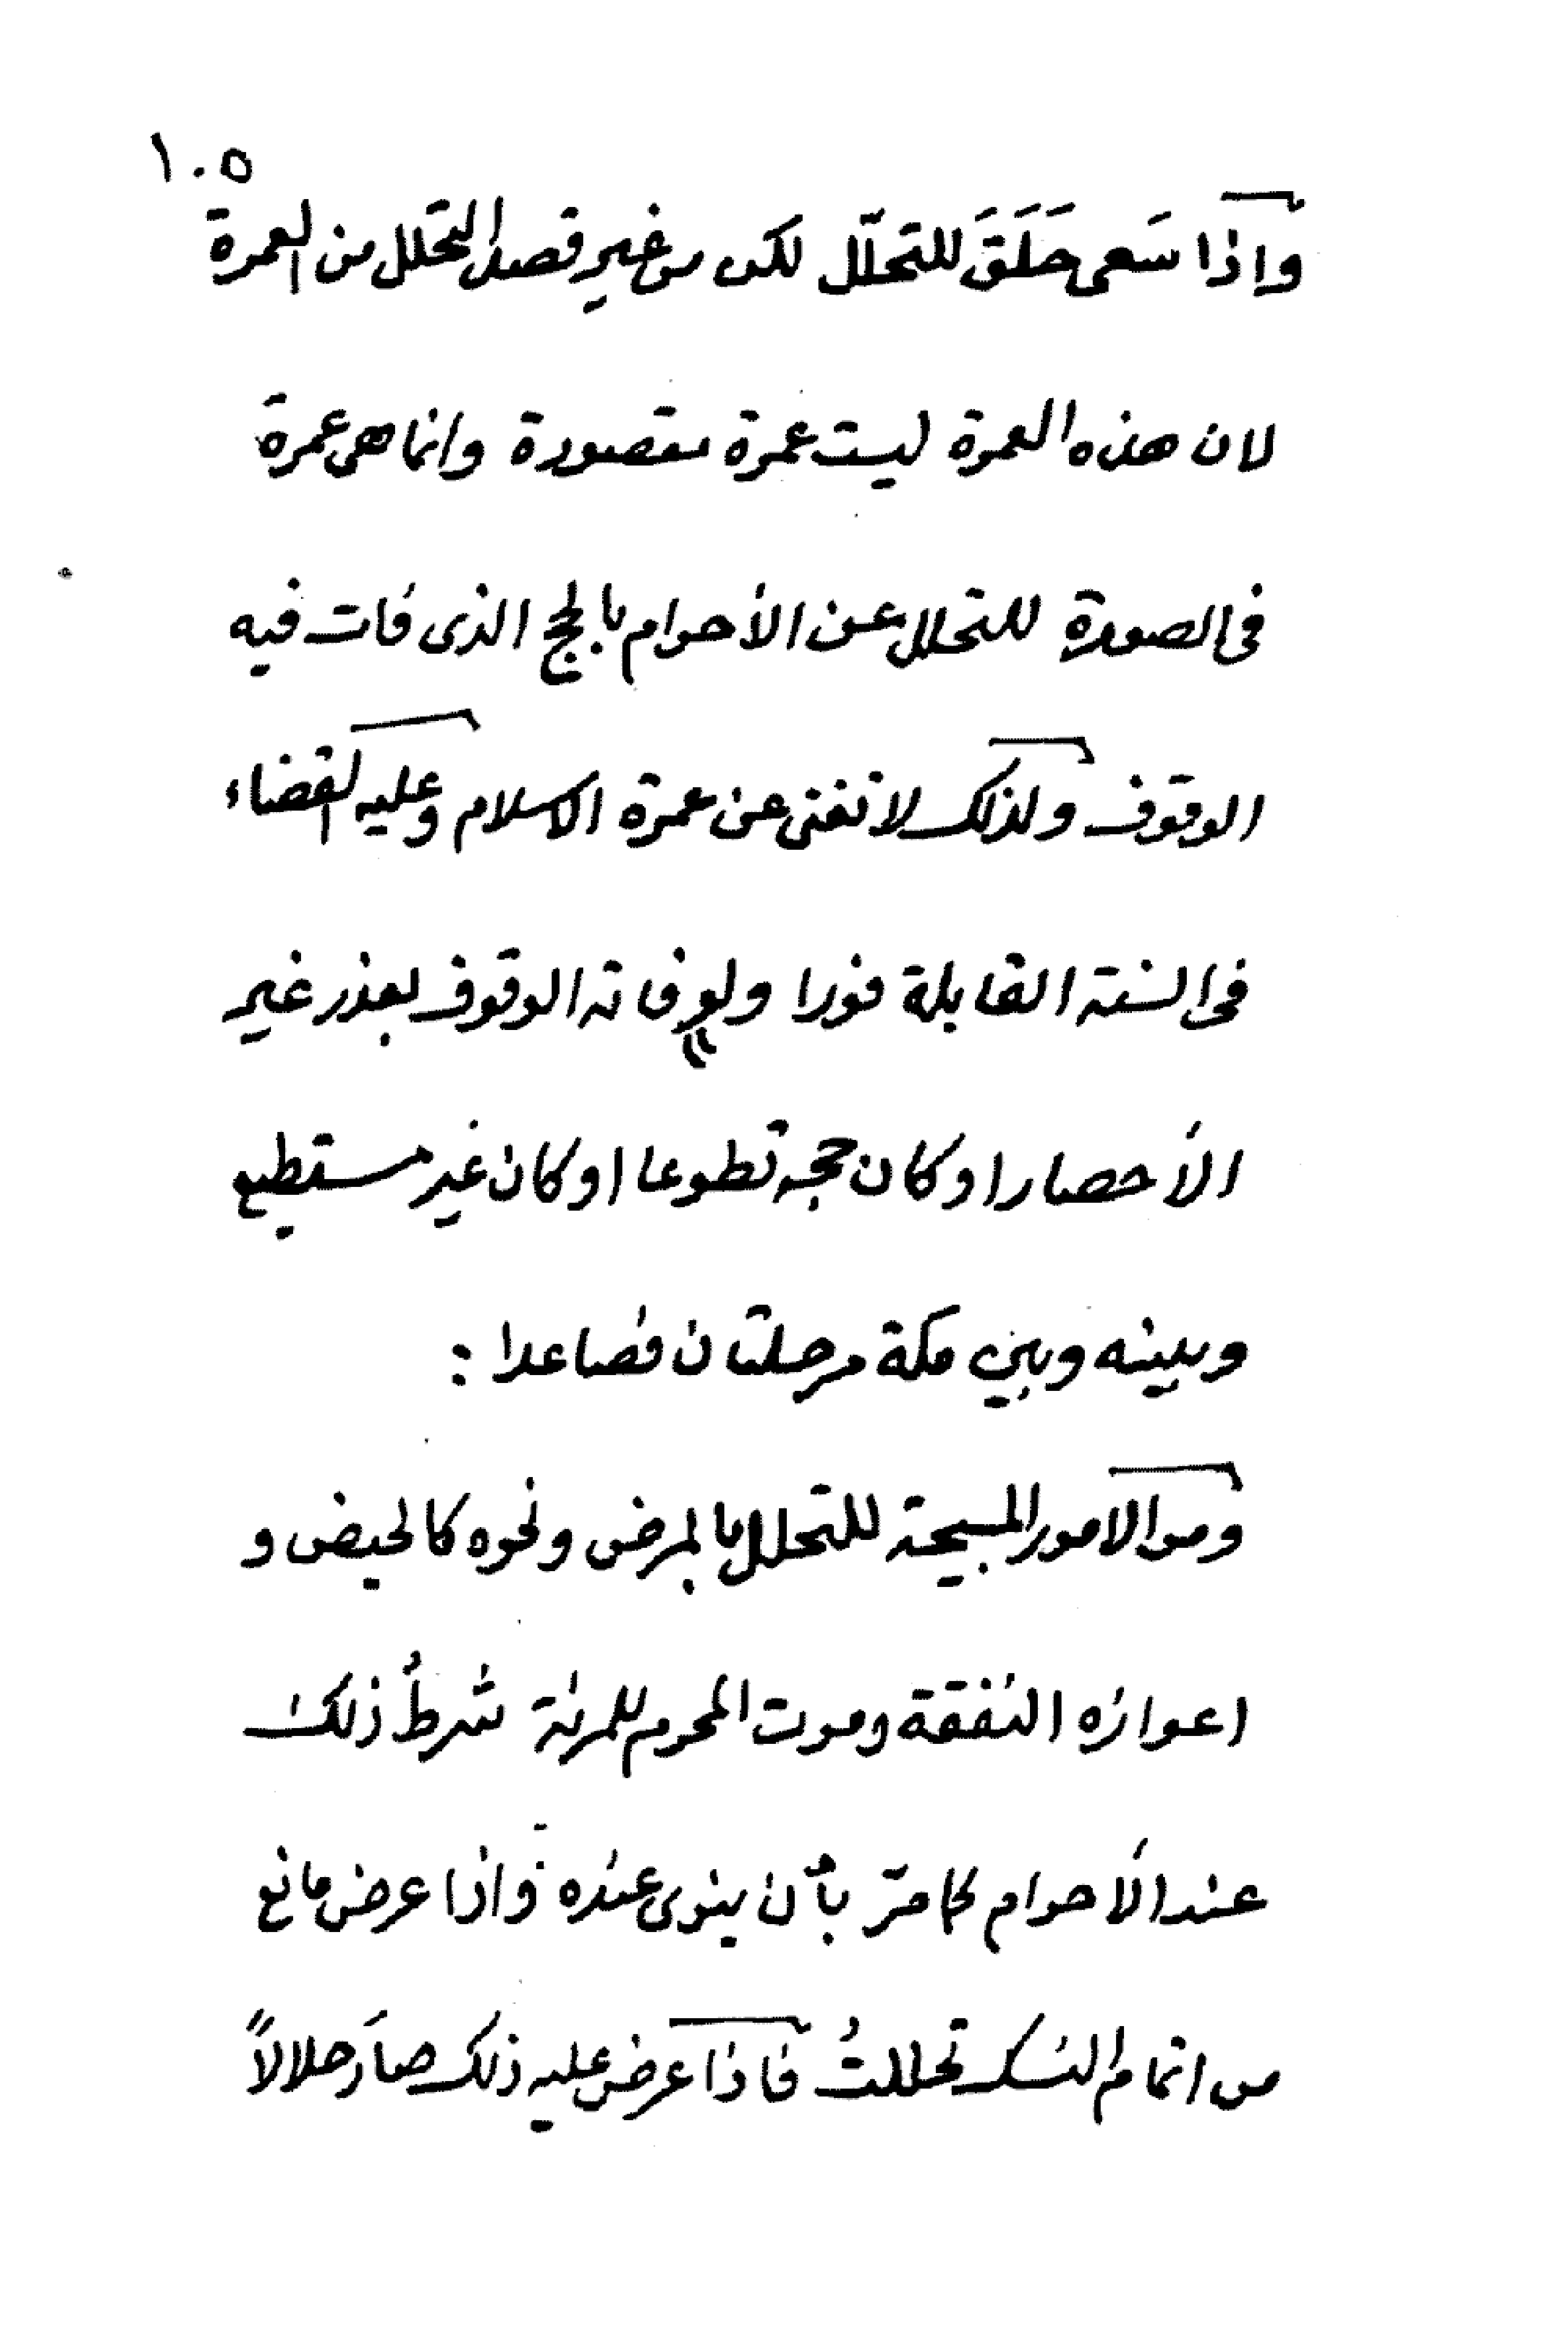 ١٠٥
واذا سَعى حَلَقَ للتحلّل لكن من غير قصد التحلل من العمرة
لان هذه العمرة ليست عمرة مقصودة وانما هى عمرة
فى الصورة للتحلل عن الأحرام بالحج الذى فات فيه
الوقوف ولذلك لا تغنى عن عمرة الاسلام وعليه القضاء
فى السنة القابلة فورا ولو فاته الوقوف بعذر غير
الأحصار او كان حجه تطوعا او كان غير مستطيع
وبينه وبين مكة مرحلتان فصاعدا :
ومن الامور المبيحة للتحلل بالمرض ونحوه كالحيض و
اعوازه النفقة وموت المحرم للمرئة شرطُ ذلك
عند الأحرام كما مرّ بأن ينوى عنده واذا عرض مانع
من اتمام النسك تحللتُ فاذا عرض عليه ذلك صارَ حلالاً